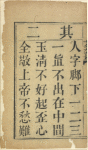 其二
人字腳下一二三
一直不出在中間
玉清不好起歪心
全敬上帝不愁難